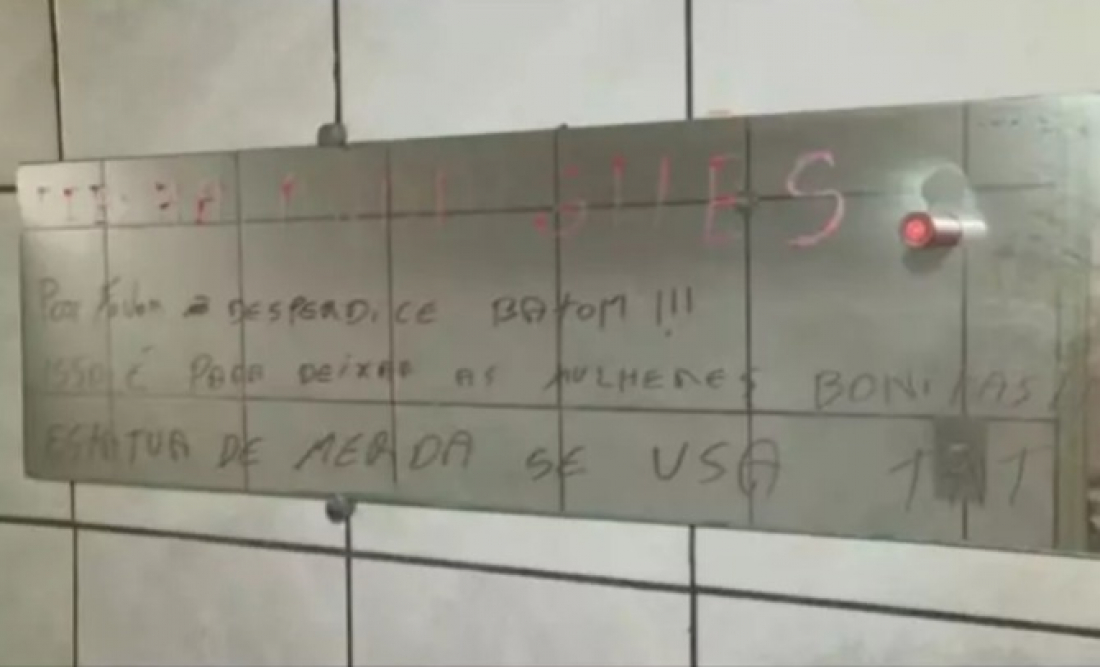 S
Por Favor ñ DESPERDICE BATOM !!!
ISSO É PARA DEIXAR AS MULHERES BONITAS!
ESTATUA DE MERDA SE USA TNT